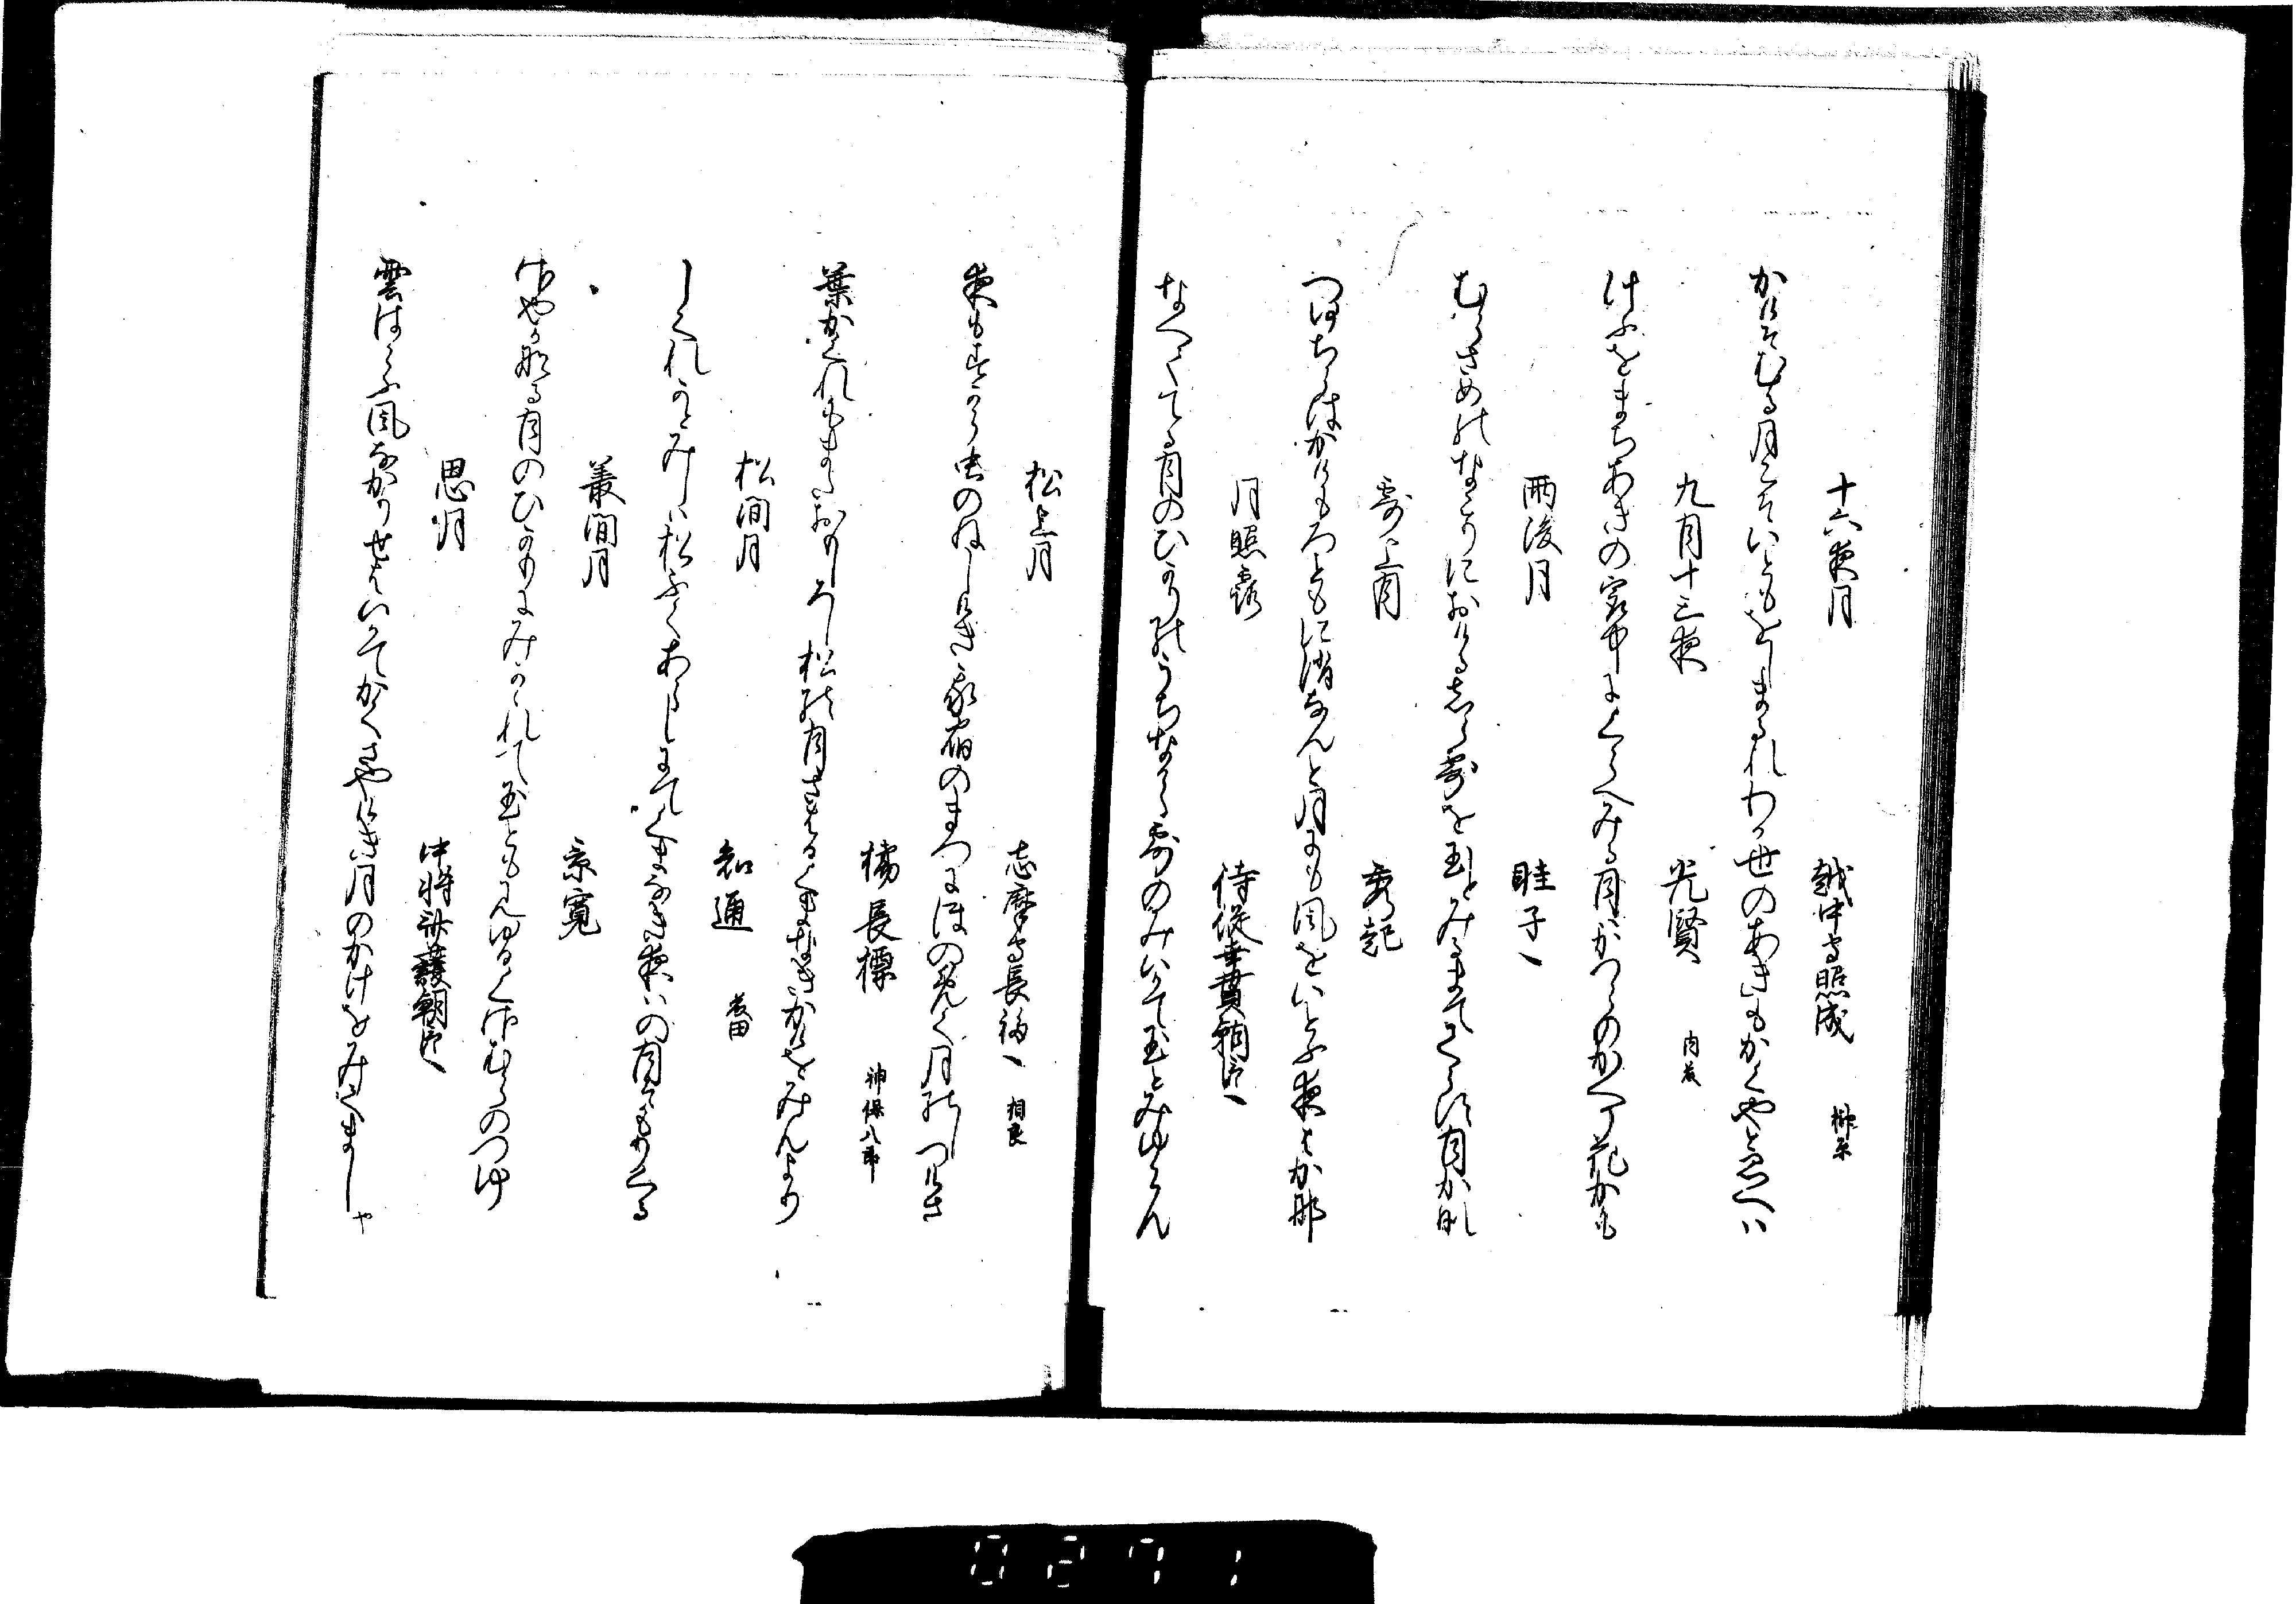 十六夜月
越中守照成 榊原
かけそむる月こそいとゝをしまるれわか世のあきもかくやとおもへは
九月十三夜
光賢 内藤
けふをまちあきの宮中にくらへみる月かつらのかへり花かも
雨後月
畦子
むらさめのなこりにおけるしら露を玉とみるまててらす月かけ
露上月
秀起
つゆちらはかけもろともに消なんと月にも風をいとふ夜はかな
月照露
侍従幸貫朝臣
なへててる月のひかりのうちなから露のみいかて玉とみゆらん
松上月
志摩守長福 相良
夜もすから虫のねしけき我宿のまつにほのめく月のしつけさ
楊長標 神保八郎
葉かくれもまたおかしろし松の月さはるくまなきかけをみんより
松間月
知通 岩田
しくれかとみしは松ふくあらしにてくまなき夜はの月そもりくる
叢間月
景寛
さやかなる月のひかりにみかかれて玉ともみゆるくさむらのつゆ
思月
中将斉護朝臣
雲はらふ風なかりせはいかてかくさやけき月のかけをみましや